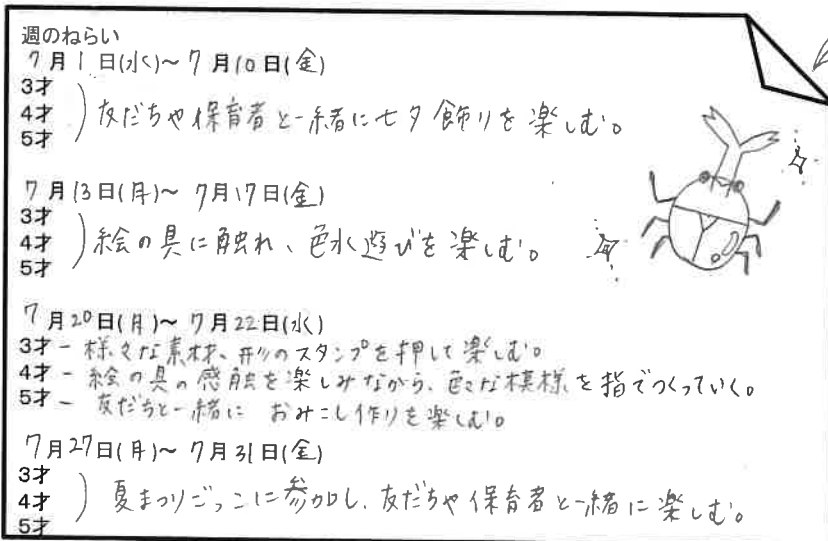 週のねらい
7月1日(水)~7月10日(金)
3才
4才 ) 友だちや保育者と一緒に七夕飾りを楽しむ。
5才
7月13日(月)~7月17日(金)
3才
4才 ) 絵の具に触れ、色水遊びを楽しむ。
5才
7月20日(月)~7月22日(水)
3才 - 様々な素材、形のスタンプを押して楽しむ。
4才 - 絵の具の感触を楽しみながら、色々な模様を指でつくっていく。
5才 - 友だちと一緒に おみこし作りを楽しむ。
7月27日(月)~7月31日(金)
3才
4才 ) 夏まつりごっこに参加し、友だちや保育者と一緒に楽しむ。
5才